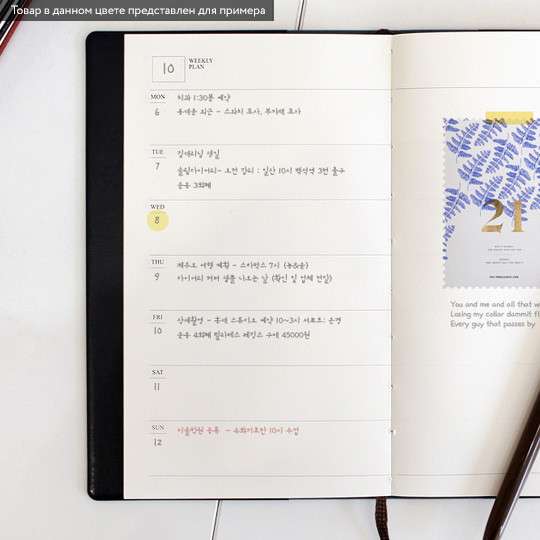 Товар в данном цвете представлен для примера
10 WEEKLY
PLAN
MON
6
치과 1:30분 예약
TUE
7
김대리님 생일
오전 강의 : 일산 10시 백석역 3번 출구
운동 3회째
WED
8
THU
9
제주도 여행 계획 - 스타벅스 7시
다이어리 커버 샘플 나오는 날 (확인 및 업체 전달)
FRI
10
상세촬영 - 홍대 스튜디오 예약 10~3시
운동 4회째 필라테스 레깅스 구매 45000원
SAT
11
SUN
12
10시 수업
21
You and me and all that w
Losing my collar dammit fl
Every guy that passes by